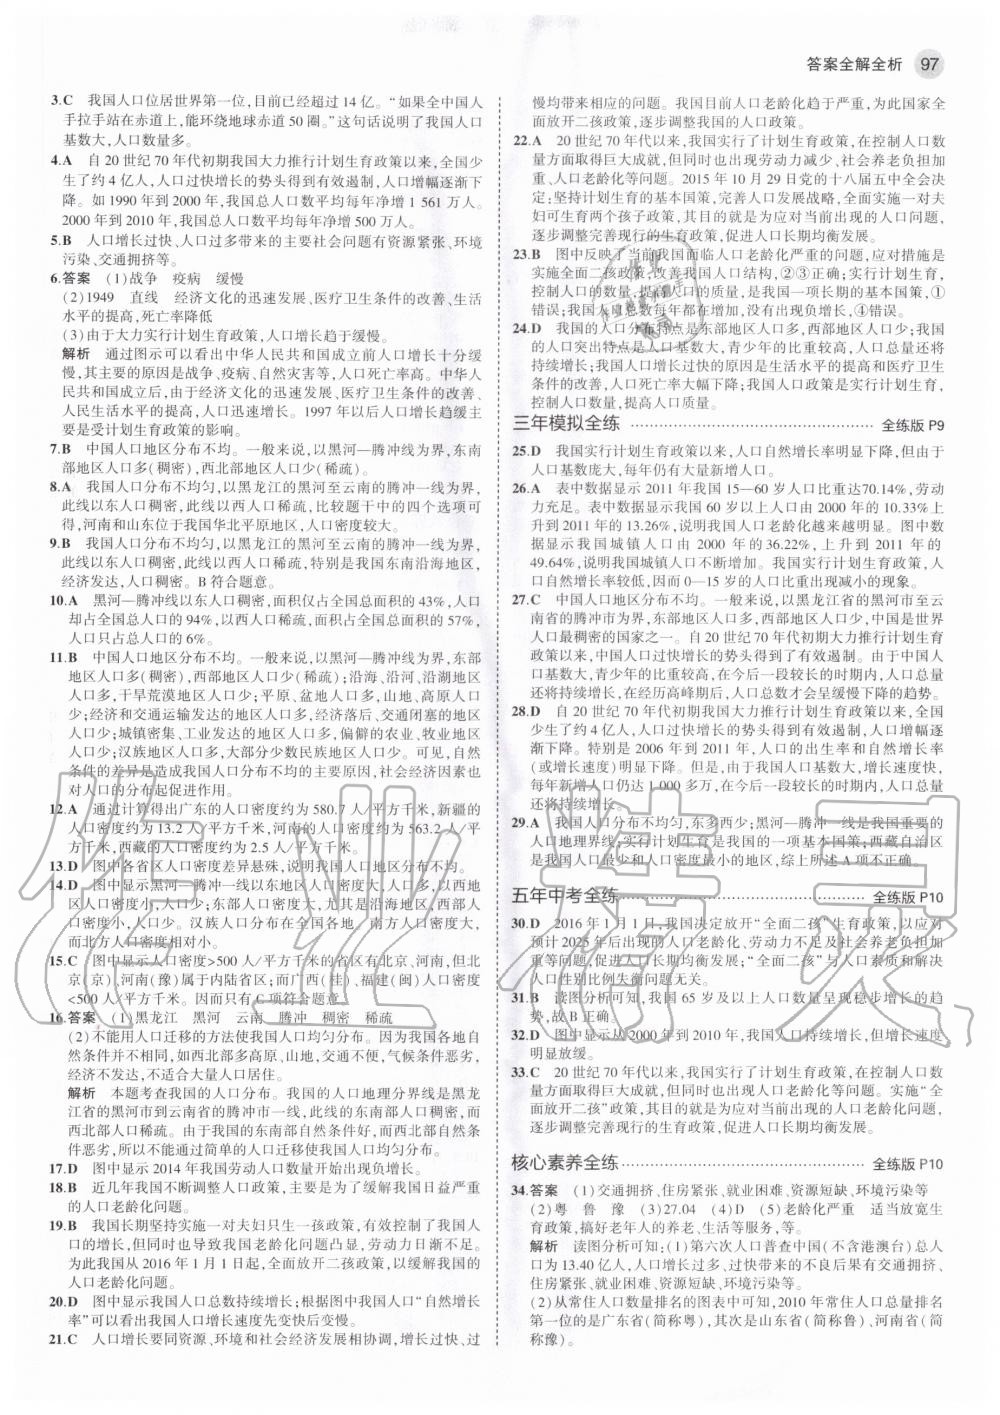 答案全解全析 97
3.C 我国人口位居世界第一位,目前已经超过 14 亿。“如果全中国人
手拉手站在赤道上,能环绕地球赤道 50 圈。”这句话说明了我国人口
基数大,人口数量多。
4.A 自 20 世纪 70 年代初期我国大力推行计划生育政策以来,全国少
生了约 4 亿人,人口过快增长的势头得到有效遏制,人口增幅逐渐下
降。如 1990 年到 2000 年,我国总人口数平均每年净增 1 561 万人。
2000 年到 2010 年,我国总人口数平均每年净增 500 万人。
5.B 人口增长过快、人口过多带来的主要社会问题有资源紧张、环境
污染、交通拥挤等。
6.答案 (1)战争 疫病 缓慢
(2)1949 直线 经济文化的迅速发展、医疗卫生条件的改善、生活
水平的提高,死亡率降低
(3)由于大力实行计划生育政策,人口增长趋于缓慢。
解析 通过图示可以看出中华人民共和国成立前人口增长十分缓
慢,其主要的原因是战争、疫病、自然灾害等,人口死亡率高。中华人
民共和国成立后,由于经济文化的迅速发展、医疗卫生条件的改善、
人民生活水平的提高,人口迅速增长。1997 年以后人口增长趋缓主
要是受计划生育政策的影响。
7.B 中国人口地区分布不均。一般来说,以黑河—腾冲线为界,东南
部地区人口多(稠密),西北部地区人口少(稀疏)。
8.A 我国人口分布不均匀,以黑龙江的黑河至云南的腾冲一线为界,
此线以东人口稠密,此线以西人口稀疏,比较题干中的四个选项可
得,河南和山东位于我国华北平原地区,人口密度较大。
9.B 我国人口分布不均匀,以黑龙江的黑河至云南的腾冲一线为界,
此线以东人口稠密,此线以西人口稀疏,特别是我国东南沿海地区,
经济发达,人口稠密。B 符合题意。
10.A 黑河—腾冲线以东人口稠密,面积仅占全国总面积的 43%,人口
却占全国总人口的 94%,以西人口稀疏,面积占全国总面积的 57%,
人口只占总人口的 6%。
11.B 中国人口地区分布不均。一般来说,以黑河—腾冲线为界,东部
地区人口多(稠密),西部地区人口少(稀疏);沿海、沿河、沿湖地区
人口多,干旱荒漠地区人口少;平原、盆地人口多,山地、高原人口
少;经济和交通运输发达的地区人口多,经济落后、交通闭塞的地区
人口少;城镇密集、工业发达的地区人口多,偏僻的农业、牧业地区
人口少;汉族地区人口多,大部分少数民族地区人口少。可见,自然
条件的差异是造成我国人口分布不均的主要原因,社会经济因素也
对人口的分布起促进作用。
12.A 通过计算得出广东的人口密度约为 580.7 人/平方千米,新疆的
人口密度约为 13.2 人/平方千米,河南的人口密度约为 563.2 人/平
方千米,西藏的人口密度约为 2.5 人/平方千米。
13.D 图中各省区人口密度差异悬殊,说明我国人口地区分布不均。
14.D 图中显示黑河—腾冲一线以东地区人口密度大,以西地区人口
密度小,人口少;东部人口密度大,尤其是沿海地区,西部地区人口
密度小,人口少。汉族人口分布在全国各地。南方人口密度大,
而北方人口密度相对小。
15.C 图中显示人口密度>500 人/平方千米的省区有北京、河南,但北
京(京)、河南(豫)属于内陆省区;而广西(桂)、福建(闽)人口密度
<500 人/平方千米。因而只有 C 项符合题意。
16.答案 (1)黑龙江 黑河 云南 腾冲 稠密 稀疏
(2)不能用人口迁移的方法使我国人口均匀分布。因为我国各地自
然条件并不相同,如西北部多高原、山地,交通不便,气候条件恶劣,
经济不发达,不适合大量人口居住。
解析 本题考查我国的人口分布。我国的人口地理分界线是黑龙
江省的黑河市到云南省的腾冲市一线,此线的东南部人口稠密,而
西北部人口稀疏。由于我国的东南部自然条件好,而西北部自然条
件恶劣,所以不能通过简单的人口迁移使我国人口均匀分布。
17.D 图中显示 2014 年我国劳动人口数量开始出现负增长。
18.B 近几年我国不断调整人口政策,主要是为了缓解我国日益严重
的人口老龄化问题。
19.B 我国长期坚持实施一对夫妇只生一孩政策,有效控制了我国人
口的增长,但同时也导致我国老龄化问题凸显,劳动力日渐不足。
为此我国从 2016 年 1 月 1 日起,全面开放二孩政策,以缓解我国的
人口老龄化问题。
20.D 图中显示我国人口总数持续增长;根据图中我国人口“自然增长
率”可以看出我国人口增长速度先变快后变慢。
21.C 人口增长要同资源、环境和社会经济发展相协调,增长过快、过
慢均带来相应的问题。我国目前人口老龄化趋于严重,为此国家全
面放开二孩政策,逐步调整我国的人口政策。
22.A 20 世纪 70 年代以来,我国实行了计划生育政策,在控制人口数
量方面取得巨大成就,但同时也出现劳动力减少、社会养老负担加
重、人口老龄化等问题。2015 年 10 月 29 日党的十八届五中全会决
定:坚持计划生育的基本国策,完善人口发展战略,全面实施一对夫
妇可生育两个孩子政策,其目的就是为应对当前出现的人口问题,
逐步调整完善现行的生育政策,促进人口长期均衡发展。
23.B 图中反映了当前我国面临人口老龄化严重的问题,应对措施是
实施全面二孩政策,改善我国人口结构,②③正确;实行计划生育,
控制人口的数量,提高人口的质量,是我国一项长期的基本国策,①
错误;我国人口总数每年都在增加,没有出现负增长,④错误。
24.D 我国的人口分布特点是东部地区人口多,西部地区人口少;我国
人口突出特点是人口基数大,青少年的比重比较高,人口总量还将
持续增长;我国人口增长过快的原因是生活水平的提高和医疗卫生
条件的改善,人口死亡率大幅下降;我国人口政策是实行计划生育,
控制人口数量,提高人口质量。
三年模拟全练 全练版 P9
25.D 我国实行计划生育政策以来,人口自然增长率明显下降,但由于
人口基数庞大,每年仍有大量新增人口。
26.A 表中数据显示 2011 年我国 15—60 岁人口比重达70.14%,劳动
力充足。表中数据显示我国 60 岁以上人口由 2000 年的 10.33%上
升到 2011 年的 13.26%,说明我国人口老龄化越来越明显。图中数
据显示我国城镇人口由 2000 年的36.22%,上升到 2011 年的
49.64%,说明我国城镇人口不断增加。我国实行计划生育政策,人口
自然增长率较低,因而 0—15 岁的人口比重出现减小的现象。
27.C 中国人口地区分布不均。一般来说,以黑龙江省的黑河市至云
南省的腾冲市为界,东部地区人口多,西部地区人口少,中国是世界
人口最稠密的国家之一。自 20 世纪 70 年代初期大力推行计划生育
政策以来,中国人口过快增长的势头得到了有效遏制。由于中国人
口基数大,青少年的比重比较高,在今后一段较长的时期内,人口总量
还将持续增长,在经历高峰期后,人口总数才会呈缓慢下降的趋势。
28.D 自 20 世纪 70 年代初期我国大力推行计划生育政策以来,全国
少生了约 4 亿人,人口过快增长的势头得到了有效遏制,人口增幅逐
渐下降。特别是 2006 年到 2011 年,人口的出生率和自然增长率
(或增长速度)明显下降。但是,由于我国人口基数大,增长速度快,
每年新增人口仍达 1 000 多万,在今后一段较长的时期内,人口总量
还将持续增长。
29.A 我国人口分布不均匀,东多西少;黑河—腾冲一线是我国重要的
人口地理界线;实行计划生育是我国的一项基本国策;西藏自治区
是我国人口最少和人口密度最小的地区,综上所述 A 项不正确。
五年中考全练 全练版 P10
30.D 2016 年 1 月 1 日,我国决定放开“全面二孩”生育政策,以应对
预计 2025 年后出现的人口老龄化、劳动力不足及社会养老负担加
重等问题,促进人口均衡发展;“全面二孩”与人口素质和解决
人口性别比例失衡问题无关。
31.B 读图分析可知,我国 65 岁及以上人口数量呈现稳步增长的趋
势,故 B 正确。
32.D 图中显示从2000 年到 2010 年,我国人口持续增长,但增长速度
明显放缓。
33.C 20 世纪 70 年代以来,我国实行了计划生育政策,在控制人口数
量方面取得巨大成就,但同时也出现人口老龄化等问题。实施“全
面放开二孩”政策,其目的就是为应对当前出现的人口老龄化问题,
逐步调整完善现行的生育政策,促进人口长期均衡发展。
核心素养全练 全练版 P10
34.答案 (1)交通拥挤、住房紧张、就业困难、资源短缺、环境污染等
(2)粤 鲁 豫 (3)27.04 (4)D (5)老龄化严重 适当放宽生
育政策,搞好老年人的养老、生活等服务,等。
解析 读图分析可知;(1)第六次人口普查中国(不含港澳台)总人
口为 13.40 亿人,人口增长过多、过快带来的不良后果有交通拥挤、
住房紧张、就业困难、资源短缺、环境污染等。
(2)从常住人口数量排名的图表中可知,2010 年常住人口总量排名
第一位的是广东省(简称粤),其次是山东省(简称鲁)、河南省(简
称豫)。